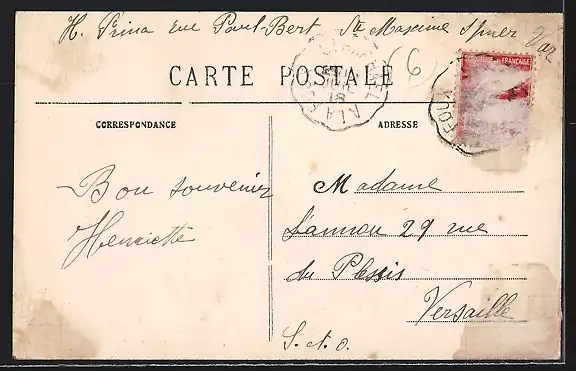 H. Prina rue Paul-Bert Ste Maxime s/mer Var
CARTE POSTALE
6
FRANÇAISE
CORRESPONDANCE
ADRESSE
Bon souvenir
Henriette
Madame
Lannou 29 rue
du Plessis
Versaille
S. et O.